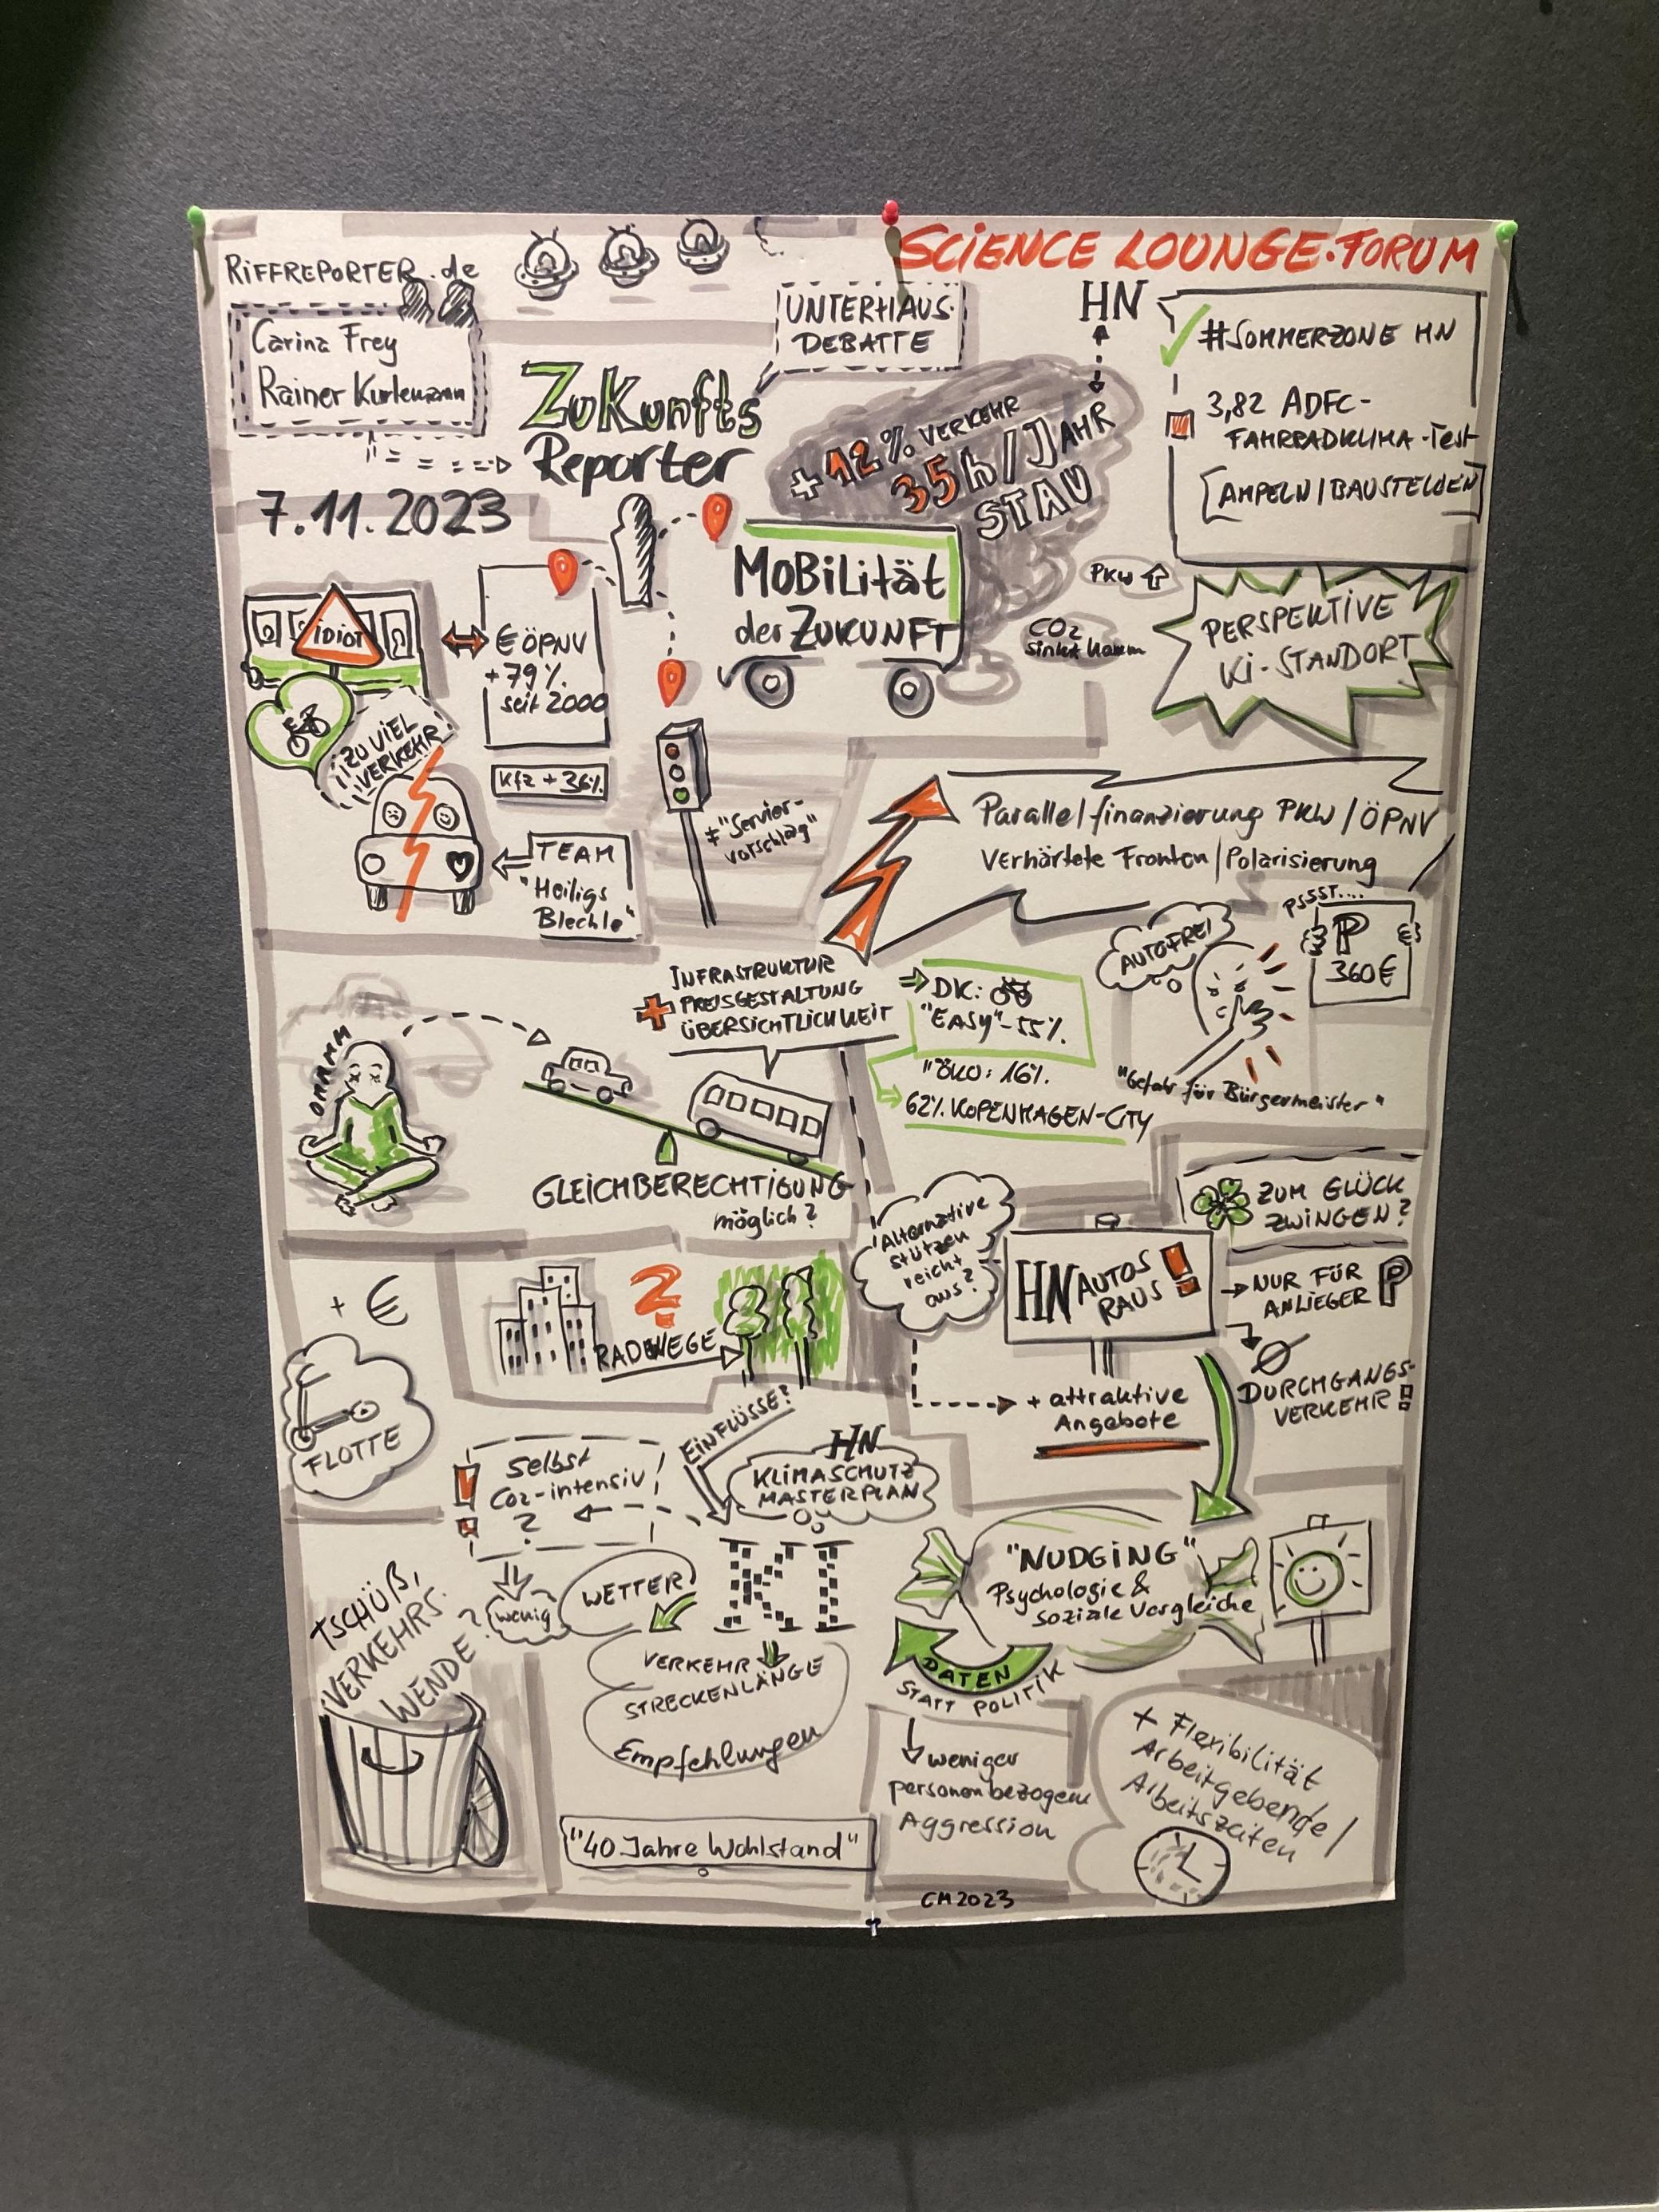 SCIENCE LOUNGE.FORUM
RiFFREPORTER.de
Carina Frey
Rainer Kurlemann
UNTERHAUS-
DEBATTE
ZuKunfts
Reporter
7.11.2023
HN
#SOMMERZONE HN
3,82 ADFC-
FAHRRADKLIMA-TesT
[AMPELN/BAUSTELLEN]
+12% VERKEHR
35h/JAHR
STAU
MOBiLität
der ZUKUNFT
PKW
CO2
sinkt kaum
PERSPEKTIVE
KI-STANDORT
iDiOT
€ ÖPNV
+79%
seit 2000
ZU VIEL
VERKEHR
Kfz + 36%
TEAM
"Heiligs
Blechle"
≠ "Servier-
vorschlag"
Parallelfinanzierung PKW/ÖPNV
Verhärtete Fronten/Polarisierung
PSSST....
P
360€
AUTOFREI
"Gefahr für Bürgermeister"
INFRASTRUKTUR
+ PREISGESTALTUNG
ÜBERSICHTLICHKEIT
DK:
"EASY"-55%
"ÖKO: 16%
62% KOPENHAGEN-CITY
OMMMM
GLEICHBERECHTIGUNG
möglich?
ZUM GLÜCK
ZWINGEN?
Alternative
stützen
reicht
aus?
HN AUTOS
RAUS!
NUR FÜR
ANLIEGER P
DURCHGANGS-
VERKEHR
+ attraktive
Angebote
+ €
FLOTTE
?
RADWEGE
EINFLÜSSE?
HN
KLIMASCHUTZ
MASTERPLAN
Selbst
CO2-intensiv
?
wenig
WETTER
KI
VERKEHR
STRECKENLÄNGE
Empfehlungen
TSCHÜß,
VERKEHRS-
WENDE?
"NUDGING"
Psychologie &
soziale Vergleiche
DATEN
STATT POLITIK
weniger
personenbezogene
Aggression
+ Flexibilität
Arbeitgebende/
Arbeitszeiten
"40 Jahre Wohlstand"
CM2023